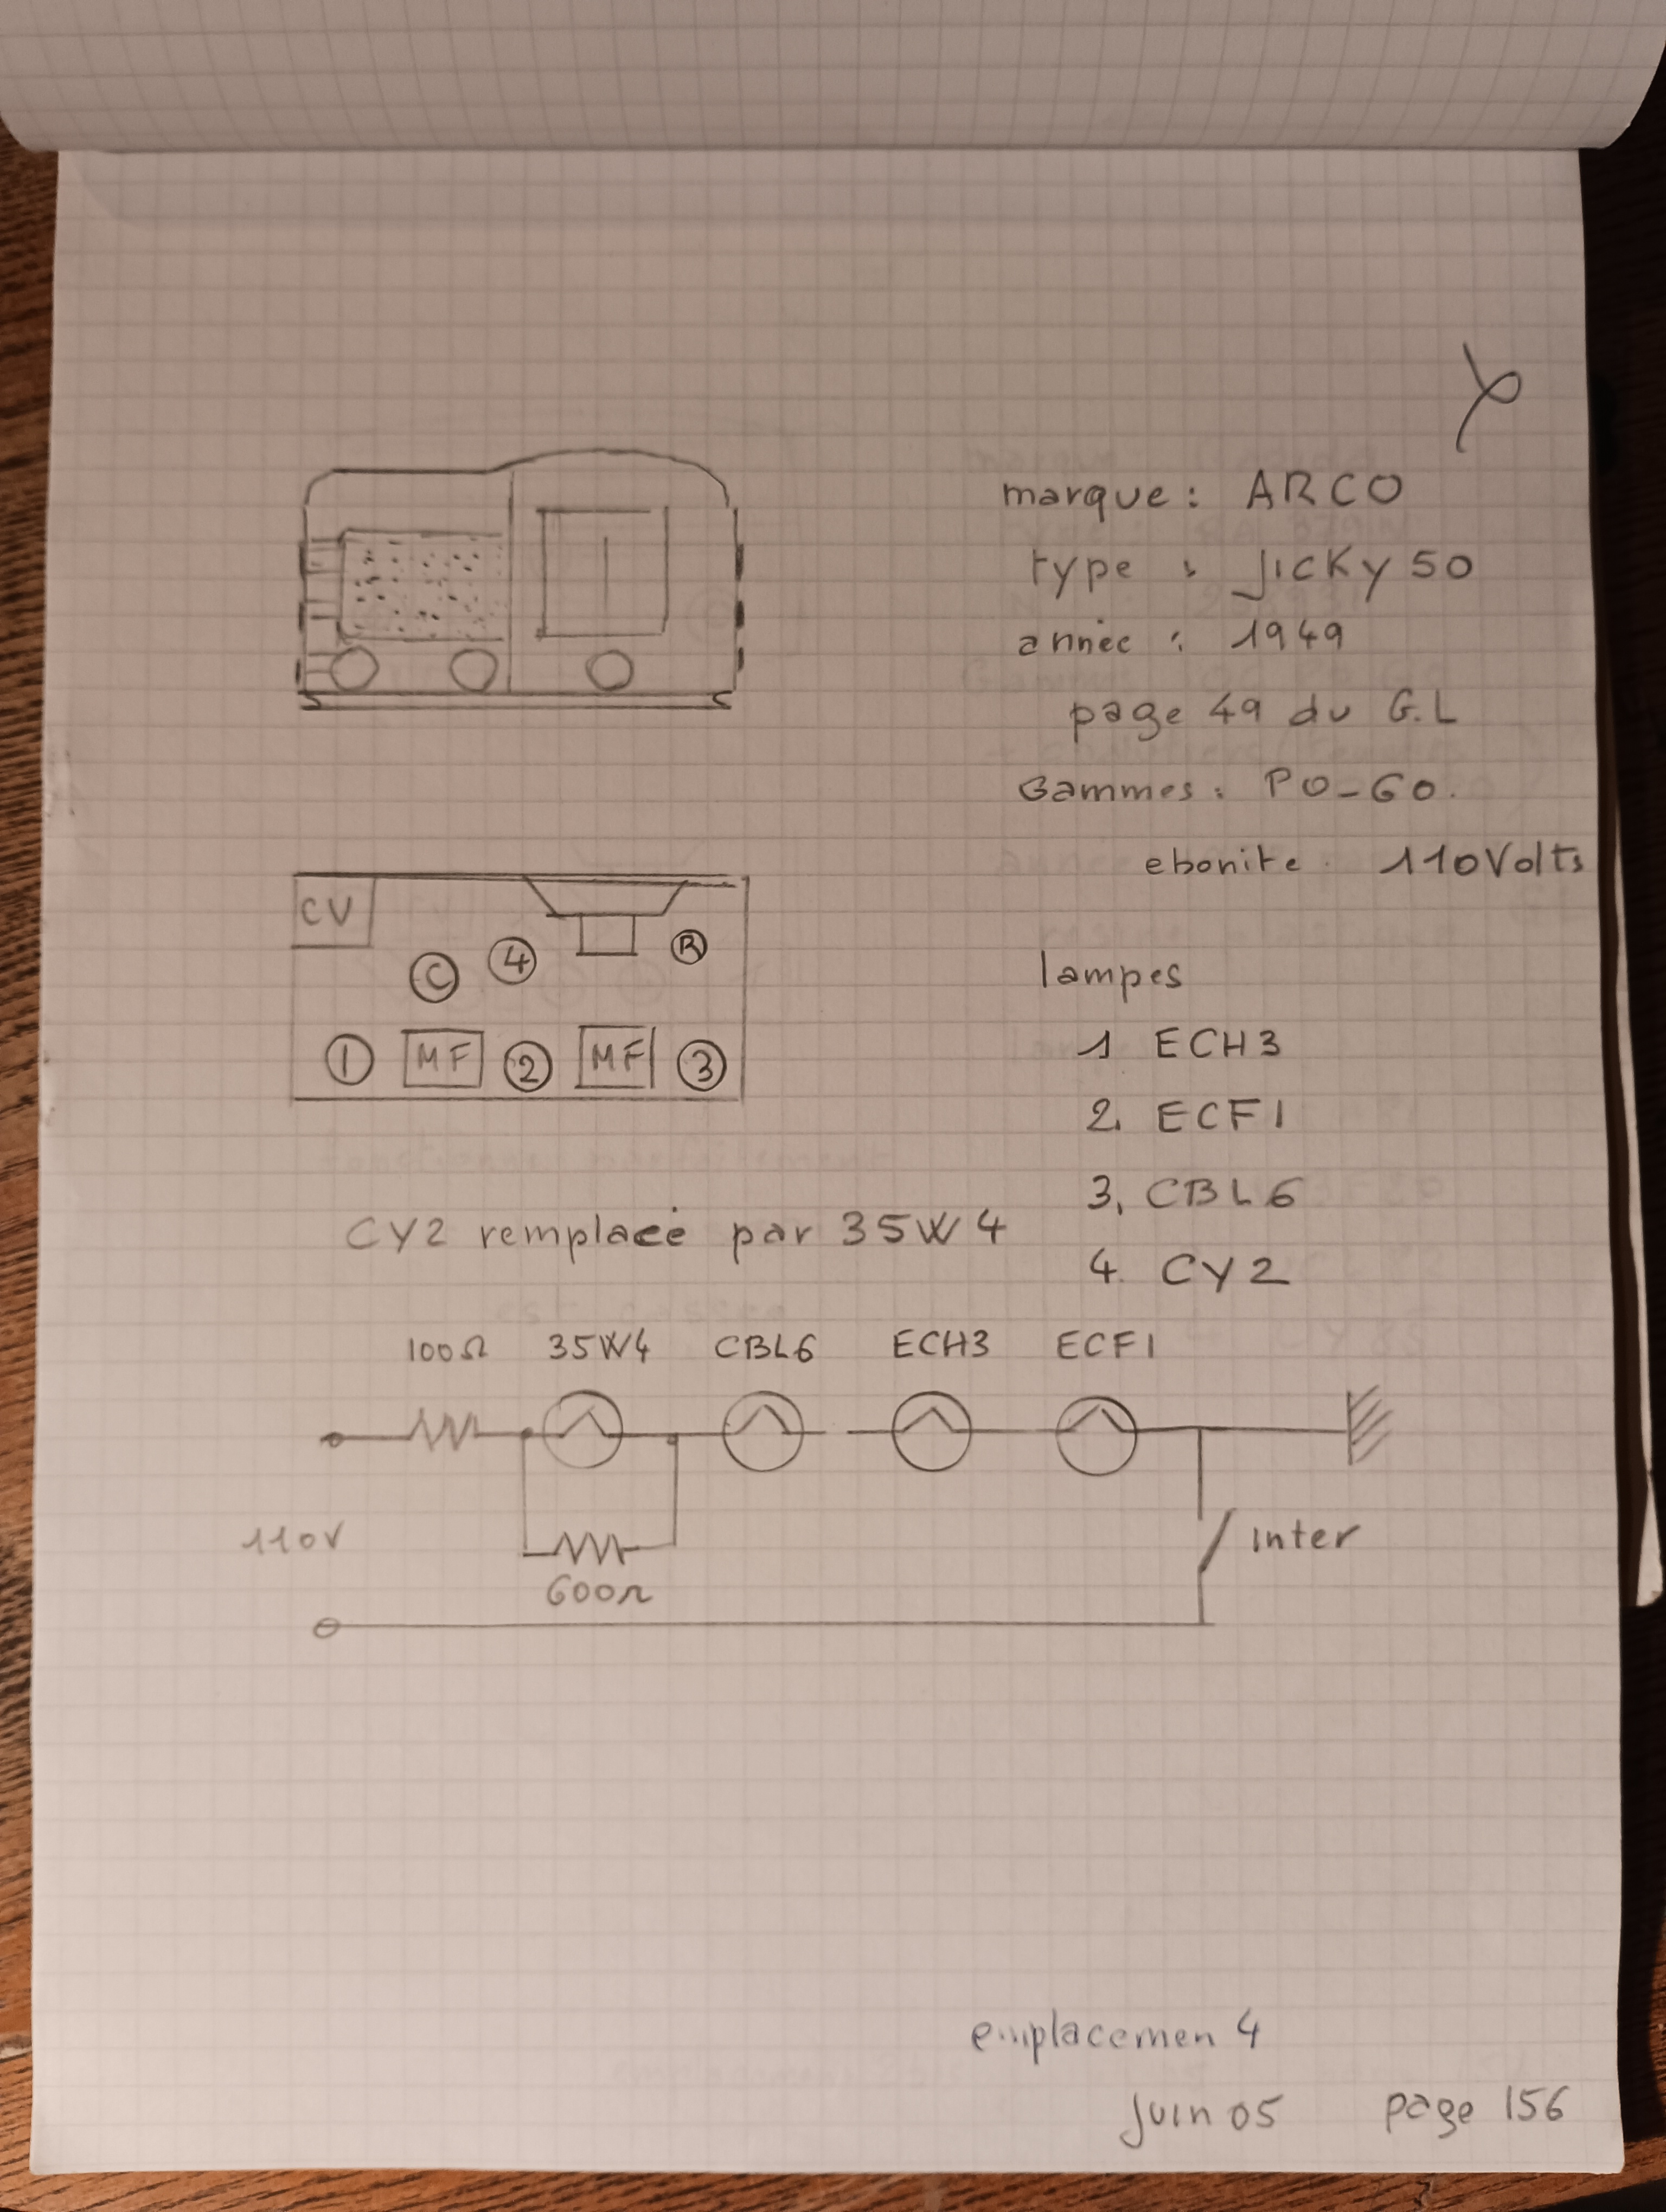 marque : ARCO
type : JICKY 50
année : 1949
page 49 du G.L
Gammes : PO-GO.
ebonite 110Volts
CV
C 4 R
1 MF 2 MF 3
lampes
1 ECH3
2. ECF1
3. CBL6
4. CY2
CY2 remplacé par 35W4
100Ω 35W4 CBL6 ECH3 ECF1
110V
Inter
600Ω
emplacemen 4
juin 05 page 156